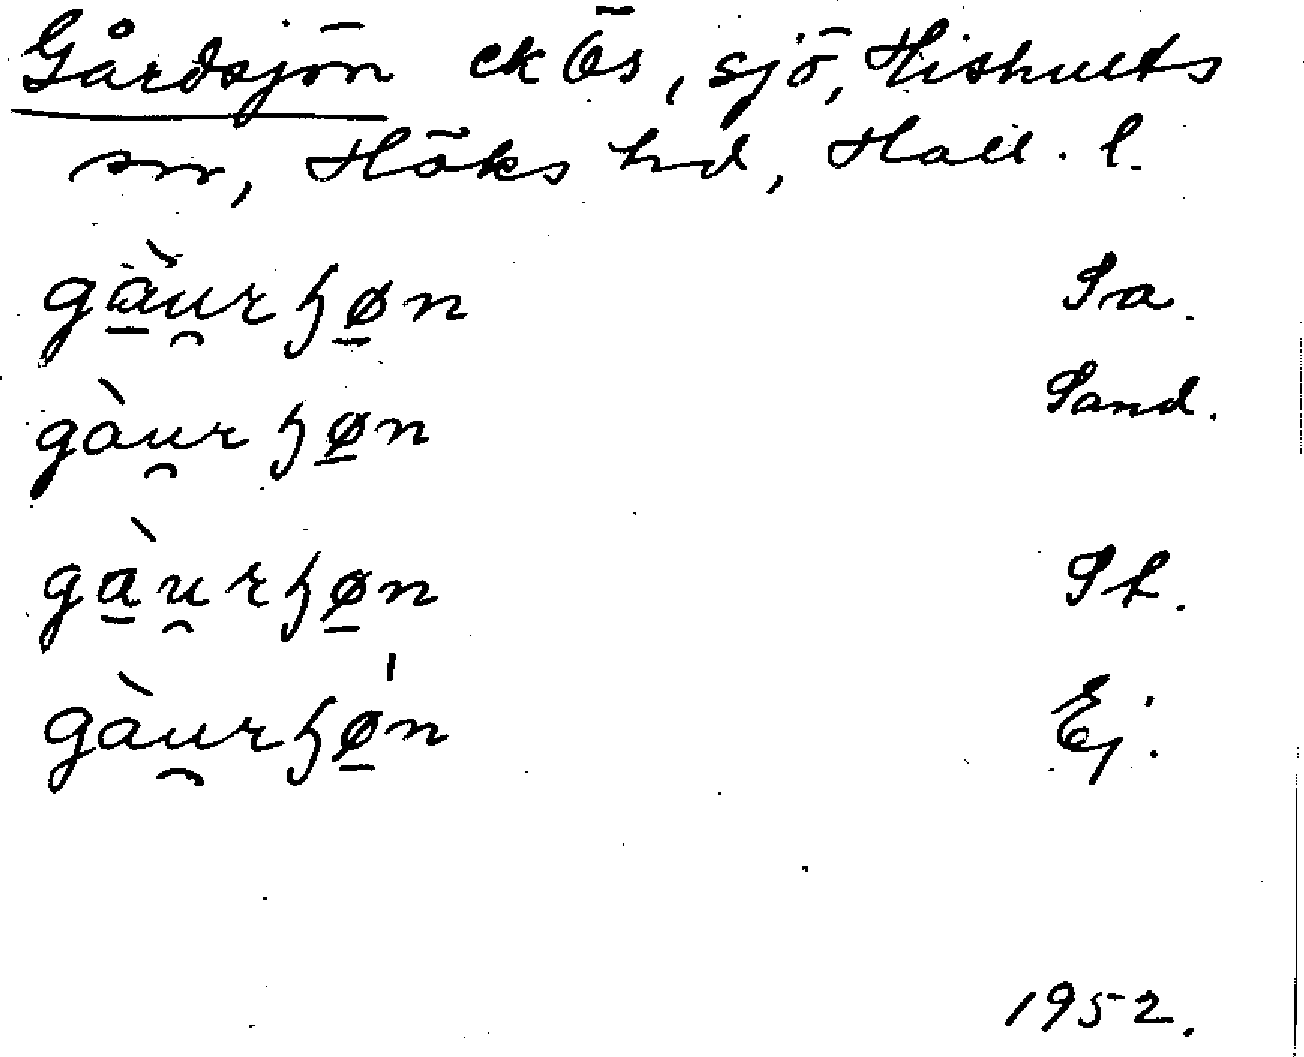 Gårdsjön ek Ös, sjö, Hishults
sn, Höks hd, Hall. l.
gà̱u̯rɧø̱n Sa.
gàu̯rɧø̱n Sand.
gà̱u̯rɧø̱n St.
gàu̯rɧǿ̱n Ej.
1952.